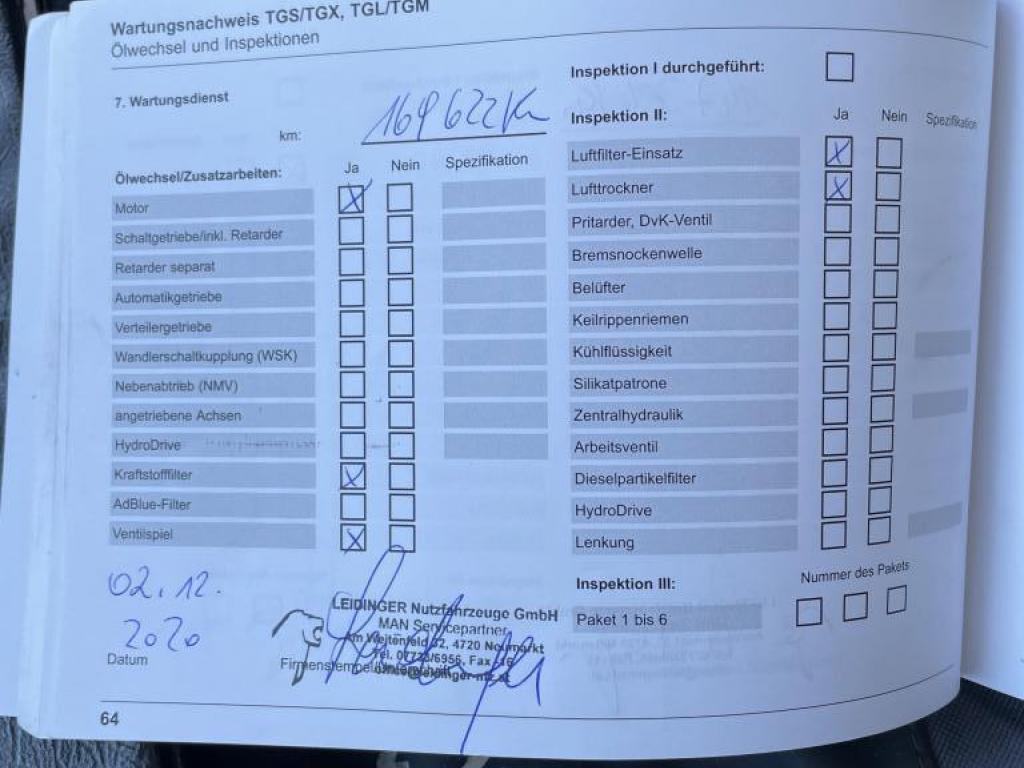 Wartungsnachweis TGS/TGX, TGL/TGM
Ölwechsel und Inspektionen
7. Wartungsdienst
km: 169622 Km
Ölwechsel/Zusatzarbeiten: Ja Nein Spezifikation
Motor X
Schaltgetriebe/inkl. Retarder
Retarder separat
Automatikgetriebe
Verteilergetriebe
Wandlerschaltkupplung (WSK)
Nebenabtrieb (NMV)
angetriebene Achsen
HydroDrive
Kraftstofffilter X
AdBlue-Filter
Ventilspiel X
02.12.
2020
Datum
LEIDINGER Nutzfahrzeuge GmbH
MAN Servicepartner
Am Weitenfeld 32, 4720 Neumarkt
Tel. 07733/6956, Fax -16
Firmenstempel
64
Inspektion I durchgeführt:
Inspektion II: Ja Nein Spezifikation
Luftfilter-Einsatz X
Lufttrockner X
Pritarder, DvK-Ventil
Bremsnockenwelle
Belüfter
Keilrippenriemen
Kühlflüssigkeit
Silikatpatrone
Zentralhydraulik
Arbeitsventil
Dieselpartikelfilter
HydroDrive
Lenkung
Inspektion III: Nummer des Pakets
Paket 1 bis 6